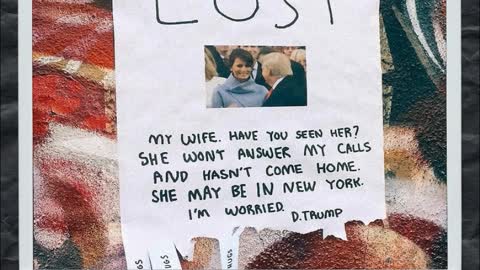 LOST
MY WIFE. HAVE YOU SEEN HER?
SHE WON'T ANSWER MY CALLS
AND HASN'T COME HOME.
SHE MAY BE IN NEW YORK.
I'M WORRIED. D.TRUMP